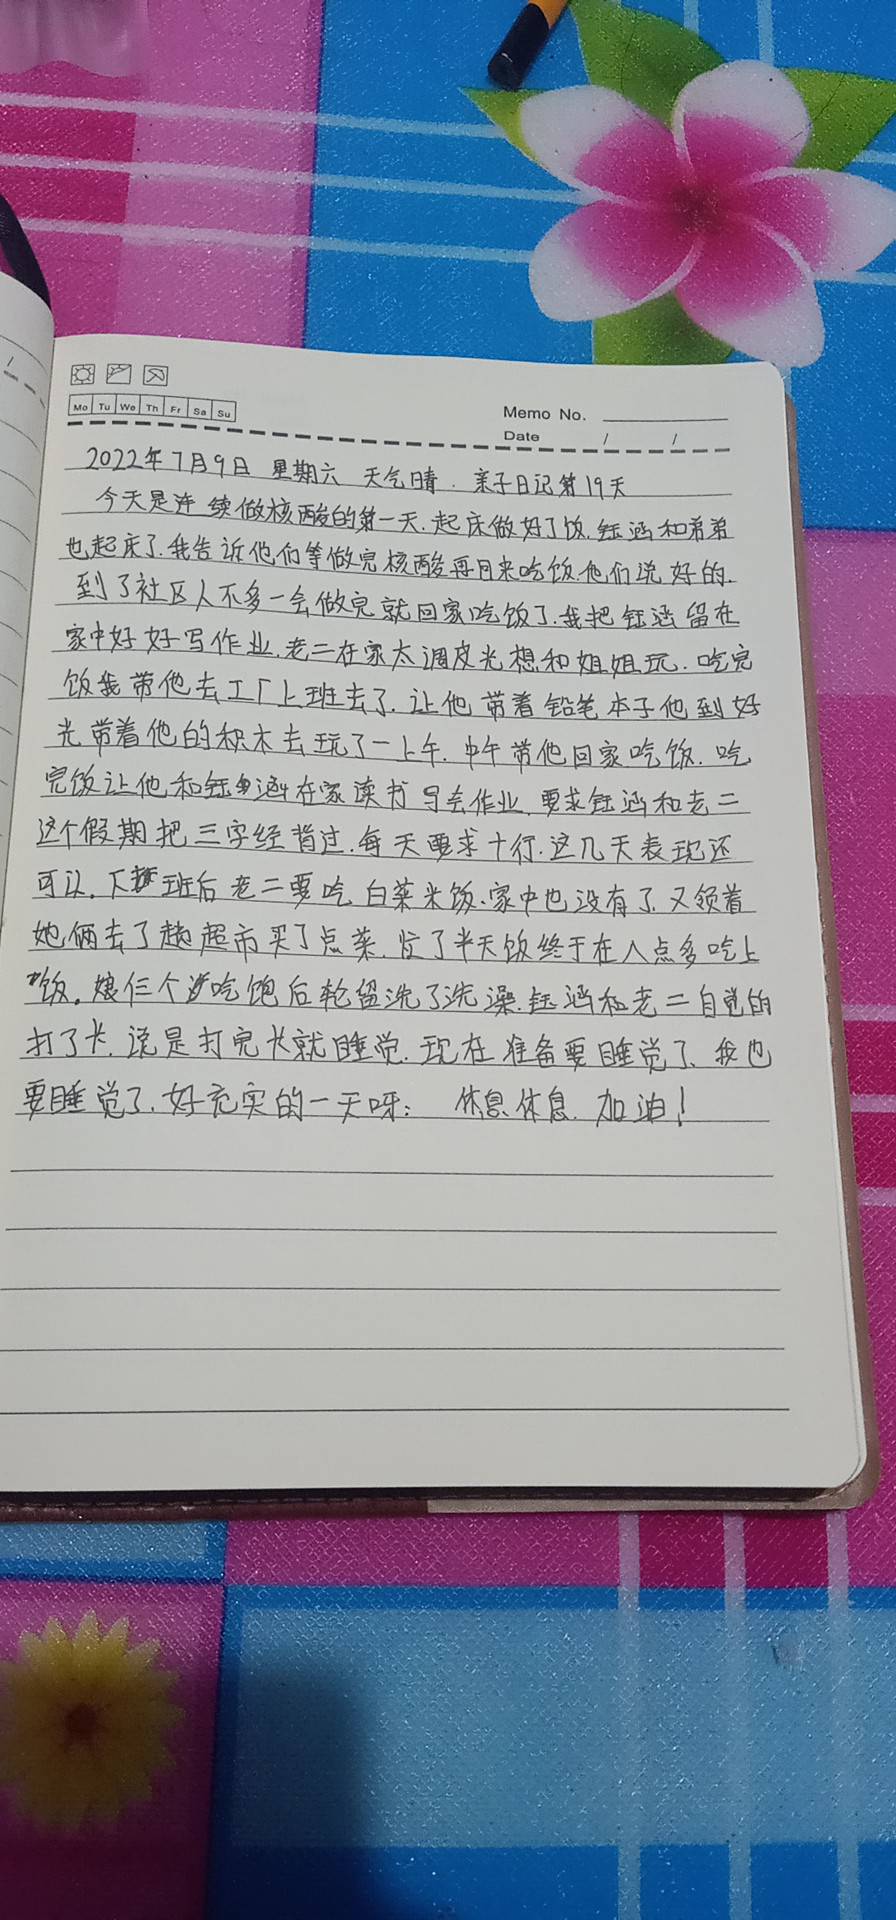 Mo Tu We Th Fr Sa Su
Memo No.
Date / /
2022年7月9日 星期六 天气晴. 亲子日记第19天
今天是连续做核酸的第一天.起床做好了饭.钰涵和弟弟
也起床了.我告诉他们等做完核酸再回来吃饭.他们说好的.
到了社区人不多一会做完就回家吃饭了.我把钰涵留在
家中好好写作业.老二在家太调皮光想和姐姐玩.吃完
饭我带他去工厂上班去了.让他带着铅笔本子他到好
光带着他的积木去玩了一上午.中午带他回家吃饭.吃
完饭让他和钰涵在家读书写会作业.要求钰涵和老二
这个假期把三字经背过.每天要求十行.这几天表现还
可以.下班后老二要吃白菜米饭.家中也没有了.又领着
她俩去了趟超市买了点菜.忙了半天饭终于在八点多吃上
饭.娘仨个吃饱后轮留洗了洗澡.钰涵和老二自觉的
打了卡.说是打完卡就睡觉.现在准备要睡觉了.我也
要睡觉了.好充实的一天呀: 休息休息.加油!